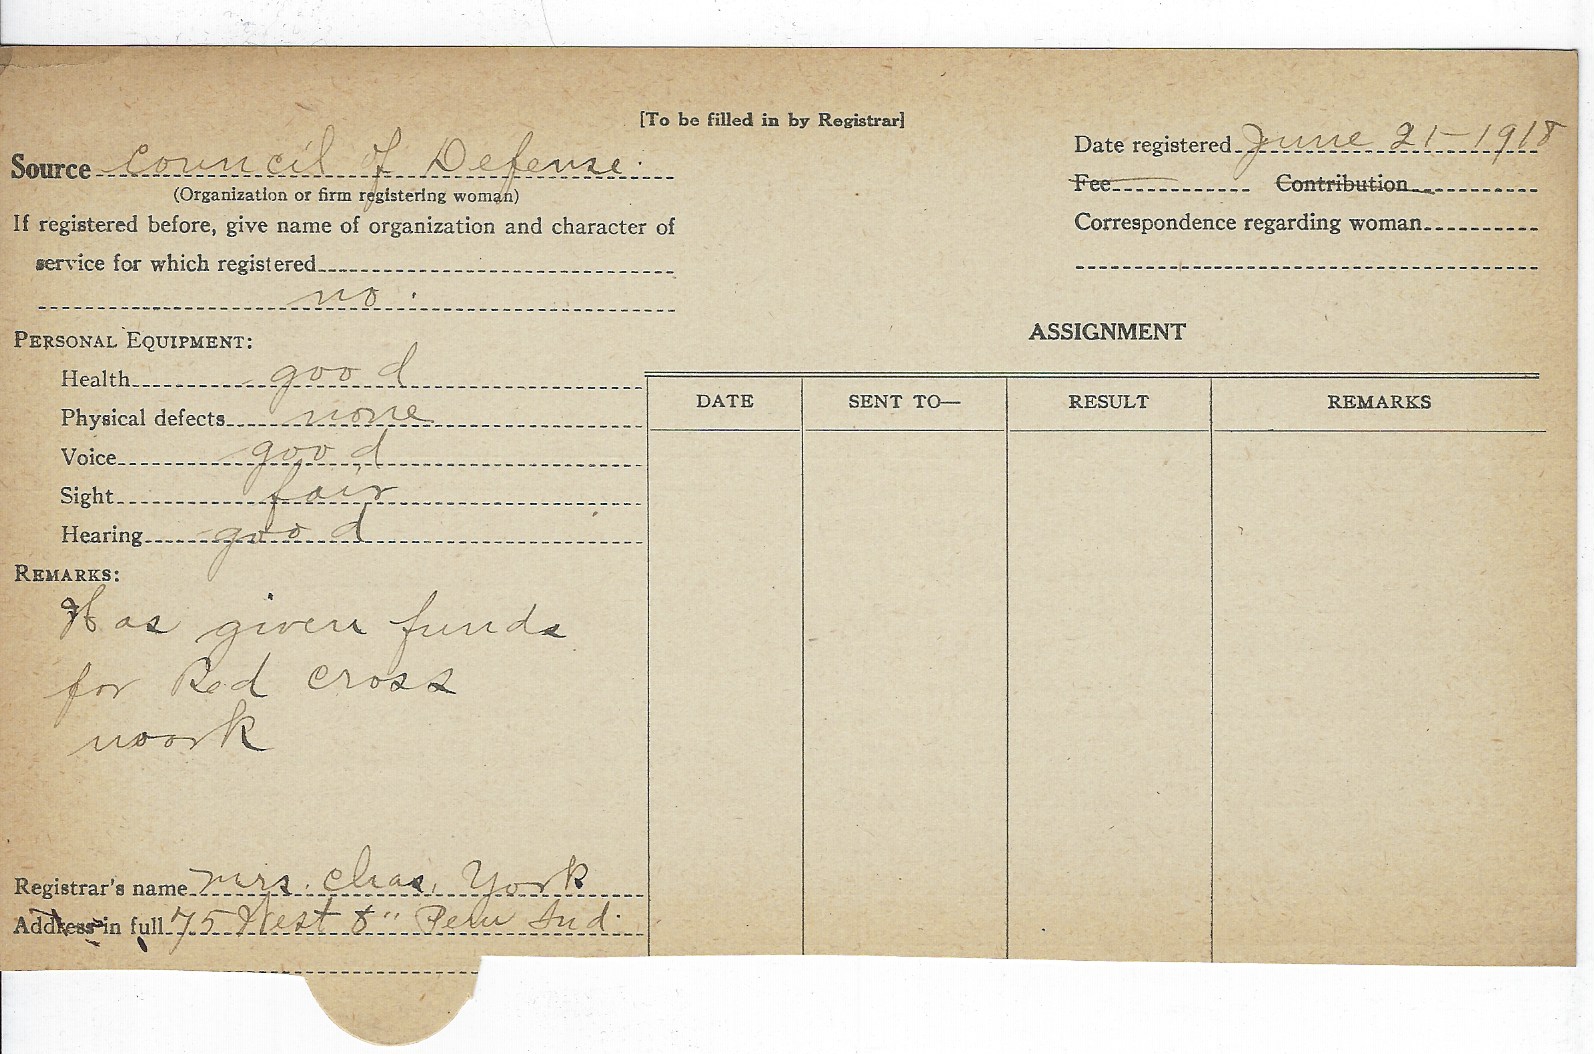 [To be filled in by Registrar]
Source Council of Defense.
(Organization or firm registering woman)
If registered before, give name of organization and character of
service for which registered
no.
PERSONAL EQUIPMENT:
Health good
Physical defects none
Voice good
Sight fair
Hearing good
REMARKS:
Has given funds
for Red cross
work
Registrar's name Mrs. Chas. York
Address in full 75 West 8" Peru Ind.
Date registered June 21-1918
Fee Contribution
Correspondence regarding woman
ASSIGNMENT
DATE SENT TO— RESULT REMARKS